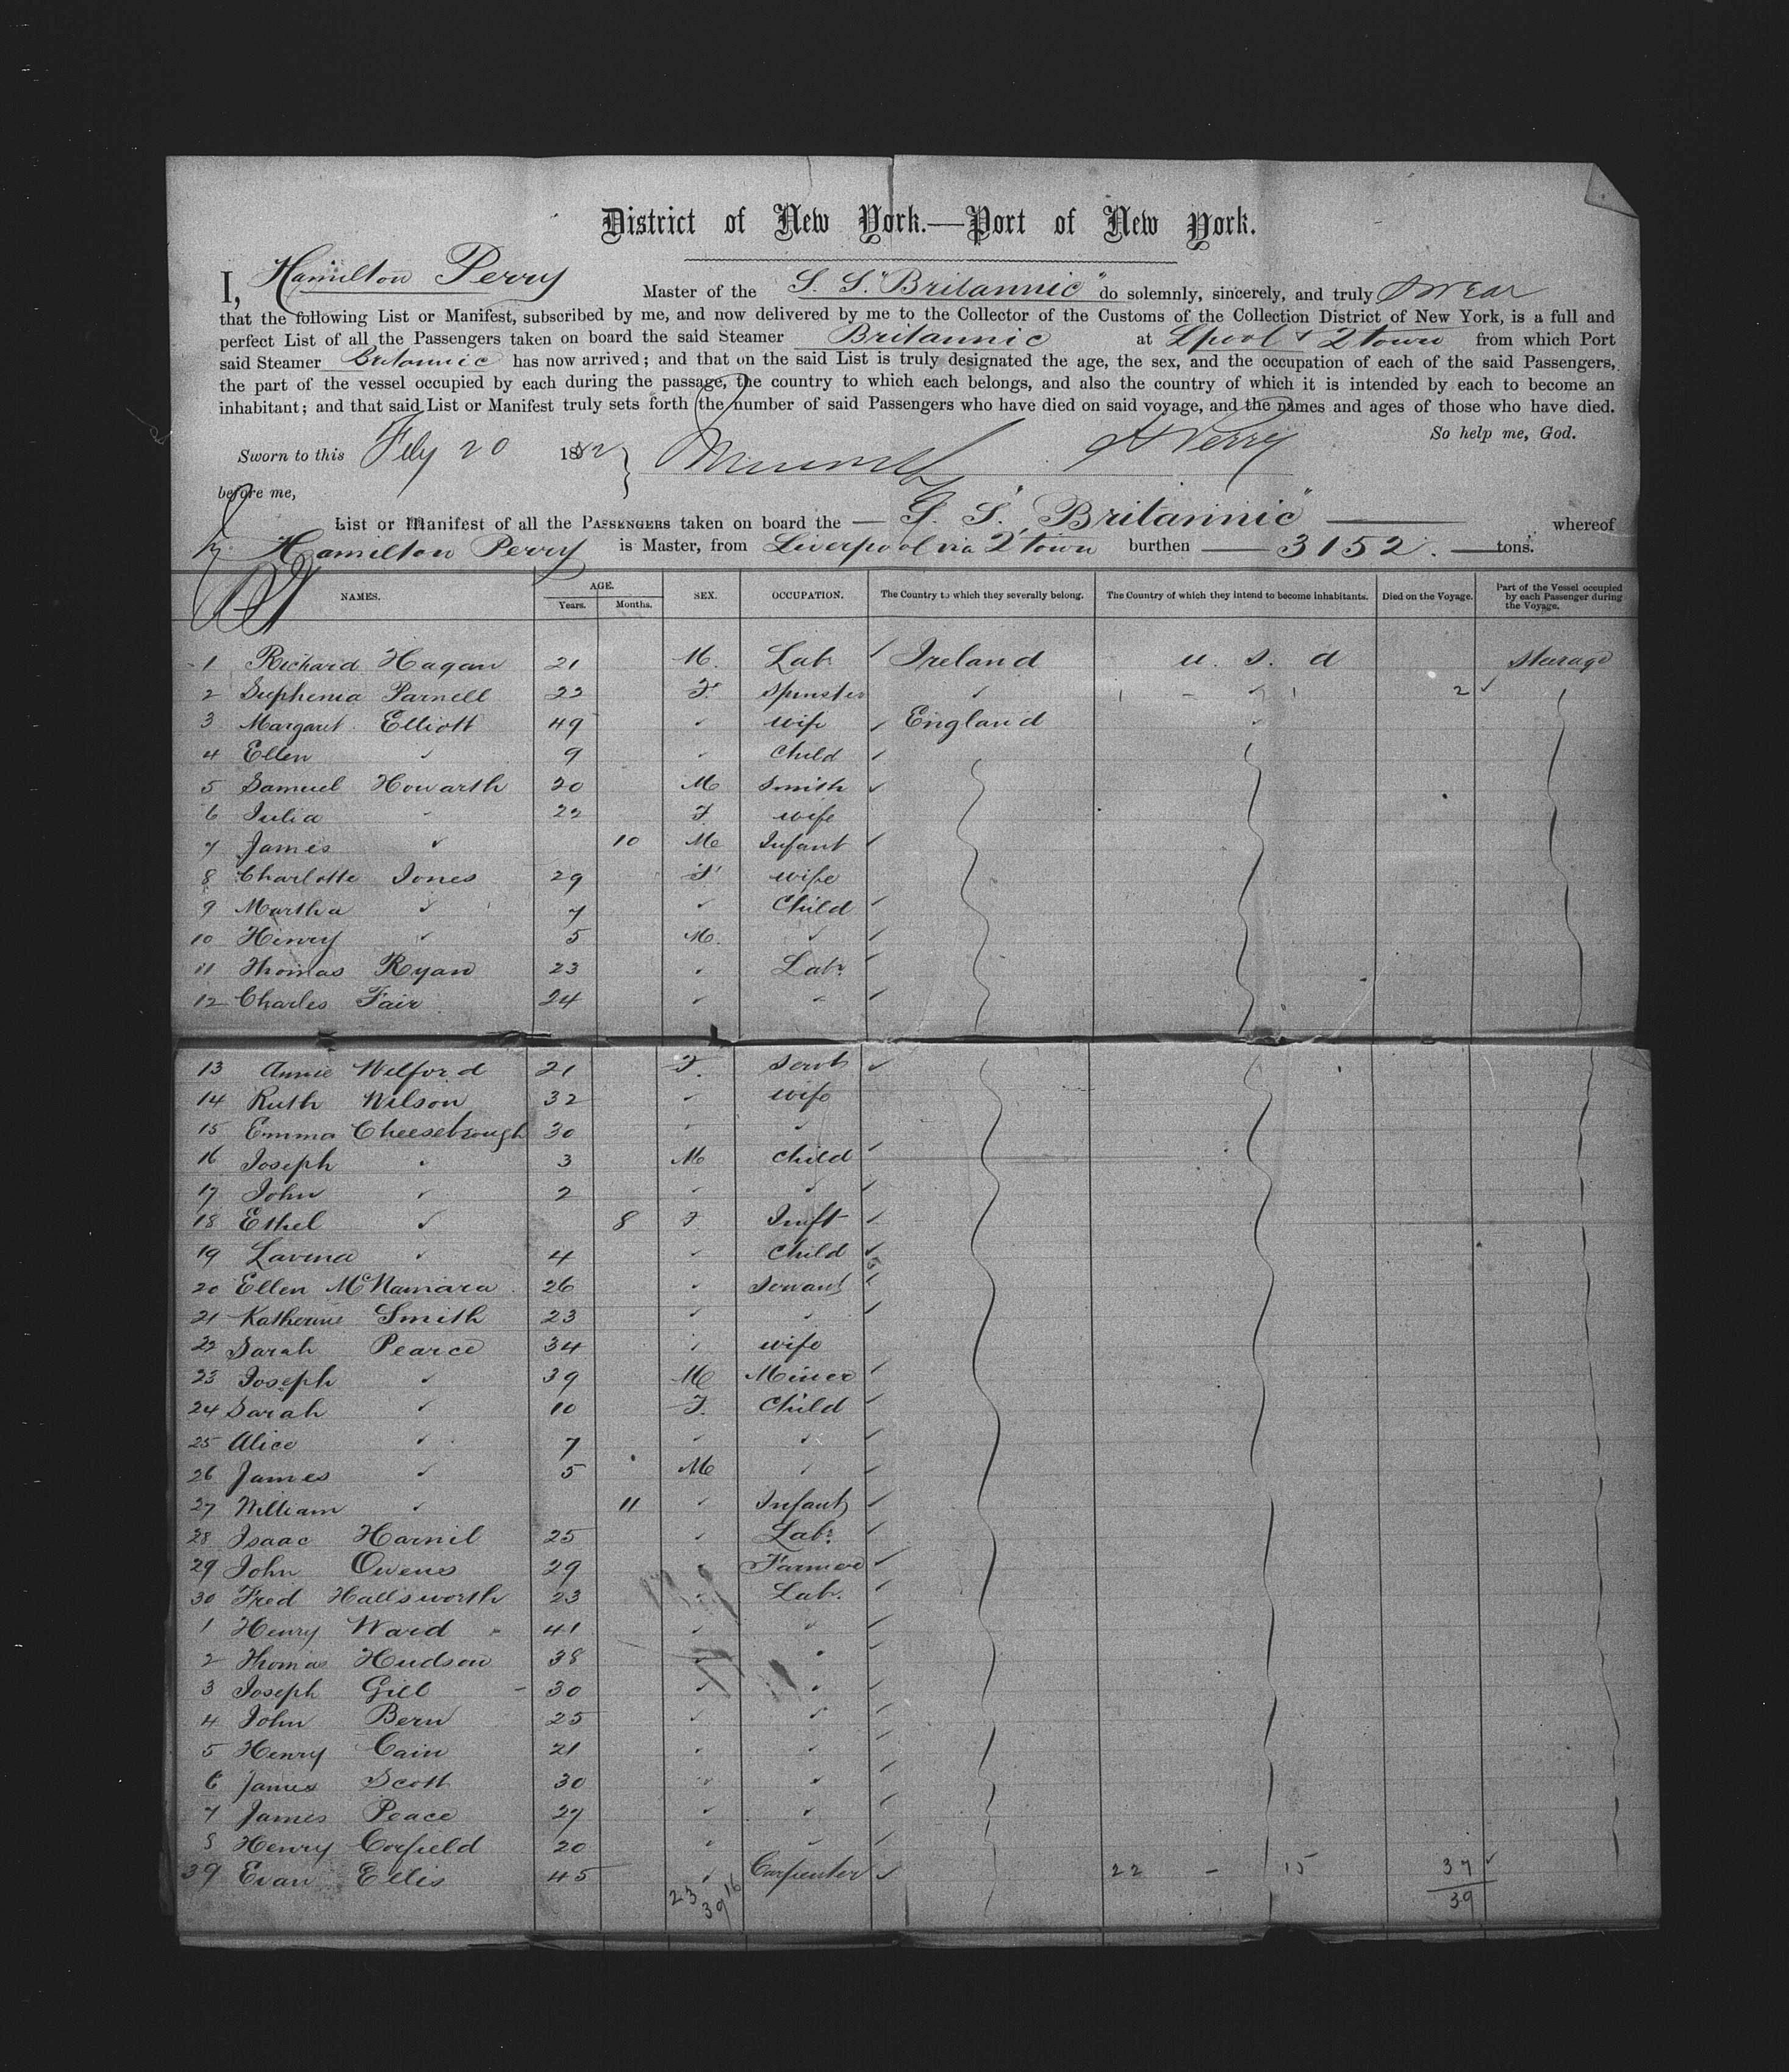 District of New York.—Port of New York.
I, Hamilton Perry Master of the S. S. "Britannic" do solemnly, sincerely, and truly swear
that the following List or Manifest, subscribed by me, and now delivered by me to the Collector of the Customs of the Collection District of New York, is a full and
perfect List of all the Passengers taken on board the said Steamer Britannic at Lpool & Qtown from which Port
said Steamer Britannic has now arrived; and that on the said List is truly designated the age, the sex, and the occupation of each of the said Passengers,
the part of the vessel occupied by each during the passage, the country to which each belongs, and also the country of which it is intended by each to become an
inhabitant; and that said List or Manifest truly sets forth the number of said Passengers who have died on said voyage, and the names and ages of those who have died.
So help me, God.
Sworn to this Feby 20 1882 H Perry
before me,
List or Manifest of all the Passengers taken on board the — S. S. "Britannic" — whereof
Hamilton Perry is Master, from Liverpool via Qtown burthen — 3152. — tons.
NAMES. AGE. Years. Months. SEX. OCCUPATION. The Country to which they severally belong. The Country of which they intend to become inhabitants. Died on the Voyage. Part of the Vessel occupied by each Passenger during the Voyage.
1 Richard Hagan 21 M. Labr ✓ Ireland U. S. a Steerage
2 Suphenia Parnell 22 F. Spinster ✓ ✓ 2 ✓
3 Margaret Elliott 49 ✓ wife ✓ England ✓
4 Ellen ✓ 9 ✓ Child ✓
5 Samuel Howarth 20 M Smith ✓
6 Julia ✓ 22 F. wife
7 James ✓ 10 M Infant ✓
8 Charlotte Jones 29 F wife
9 Martha ✓ 7 ✓ Child ✓
10 Henry ✓ 5 M. ✓ ✓
11 Thomas Ryan 23 ✓ Labr ✓
12 Charles Fair 24 ✓ ✓ ✓
13 Annie Welford 21 F. Servt ✓
14 Ruth Wilson 32 ✓ wife
15 Emma Cheesebrough 30 ✓ ✓
16 Joseph ✓ 3 M Child ✓
17 John ✓ 2 ✓ ✓ ✓
18 Ethel ✓ 8 F Inft ✓
19 Lavina ✓ 4 ✓ Child ✓
20 Ellen McNamara 26 ✓ Servant ✓
21 Katherine Smith 23 ✓ ✓ ✓
22 Sarah Pearce 34 ✓ wife
23 Joseph ✓ 39 M Miner ✓
24 Sarah ✓ 10 F. Child ✓
25 Alice ✓ 7 ✓ ✓ ✓
26 James ✓ 5 M ✓ ✓
27 William ✓ 11 ✓ Infant ✓
28 Isaac Harnil 25 ✓ Labr ✓
29 John Owens 29 ✓ Farmer ✓
30 Fred Hallsworth 23 ✓ Labr. ✓
1 Henry Ward 41 ✓ ✓ ✓
2 Thomas Hudson 38 ✓ ✓ ✓
3 Joseph Gill 30 ✓ ✓ ✓
4 John Bern 25 ✓ ✓ ✓
5 Henry Cain 21 ✓ ✓ ✓
6 James Scott 30 ✓ ✓ ✓
7 James Peace 27 ✓ ✓ ✓
8 Henry Corfield 20 ✓ ✓ ✓
39 Evan Ellis 45 ✓ Carpenter ✓ 22 - 15 37 ✓
23 16 39 39